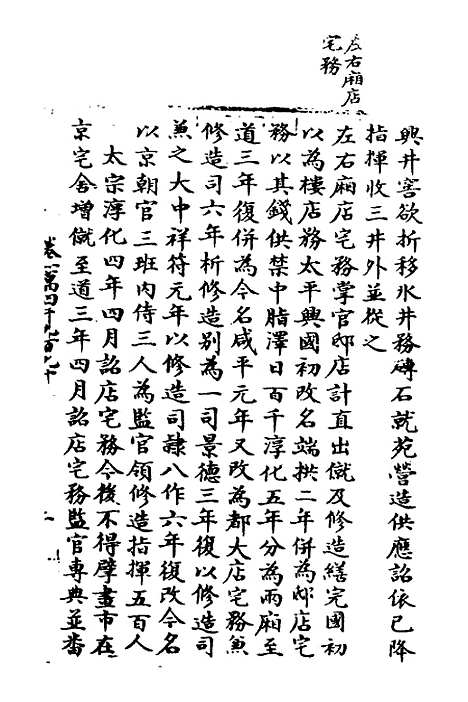 左右廂店
宅務
興井窖欲折移氷井務磚石就苑營造供應詔依已降
指揮收三井外並從之
左右廂店宅務掌官邸店計直出僦及修造繕完國初
以為樓店務太平興國初改名端拱二年併為邸店宅
務以其錢供禁中脂澤日百千淳化五年分為兩廂至
道三年復併為今名咸平元年又改為都大店宅務兼
修造司六年析修造別為一司景德三年復以修造司
兼之大中祥符元年以修造司隸八作六年復改今名
以京朝官三班內侍三人為監官領修造指揮五百人
太宗淳化四年四月詔店宅務今後不得擘畫市在
京宅舍增僦至道三年四月詔店宅務監官專典並當
卷一萬四千九百九十
一